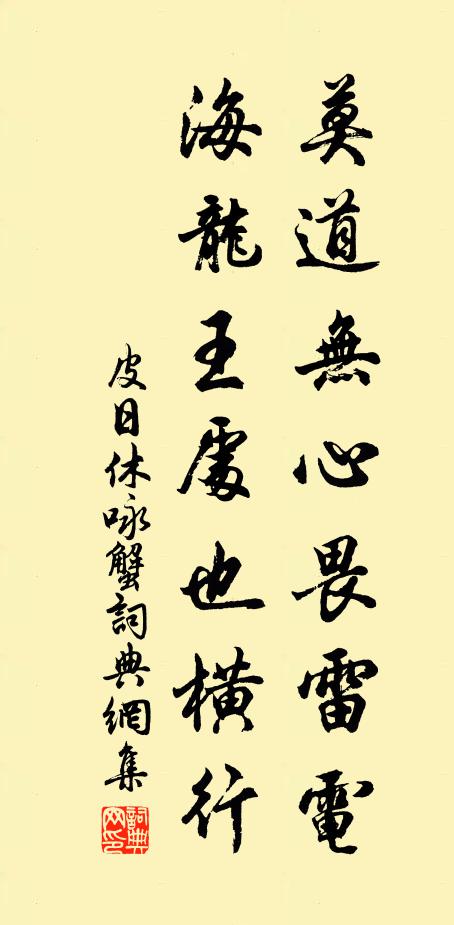 莫道無心畏雷電
海龍王處也橫行
皮日休咏蟹詞典網集
詞典网印